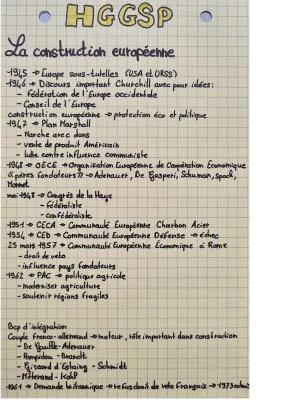 HGGSP
La construction européenne
-1945 → Europe sous-tutelles (USA et URSS)
-1946 → Discours important Churchill avec pour idées:
- fédération de l'Europe occidentale
- Conseil de l'Europe
construction européenne → protection éco et politique
-1947 → Plan Marshall
- Marche avec dons
- vente de produit Américain
- lutte contre influence communiste
-1948 → OECE → Organisation Européenne de Coopération Economique
«pères fondateurs» → Adenauer, De Gasperi, Schuman, Spaak,
Monnet
mai 1948 → Congrès de la Haye
- fédéraliste
- confédéraliste
-1951 → CECA → Communauté Européenne Charbon Acier
-1954 → CED → Communauté Européenne Défense → échec
25 mars 1957 → Communauté Européenne Économique à Rome
- droit de veto
- influence pays fondateurs
-1962 → PAC → politique agricole
- moderniser agriculture
- soutenir régions fragiles
Bcp d'intégration
Couple Franco-allemand → moteur, rôle important dans construction
- De Gaulle-Adenauer
- Pompidou - Brandt
- Giscard d'Estaing - Schmidt
- Mitterand - Kohl
-1961 → Demande britannique → refus droit de veto Français → 1973